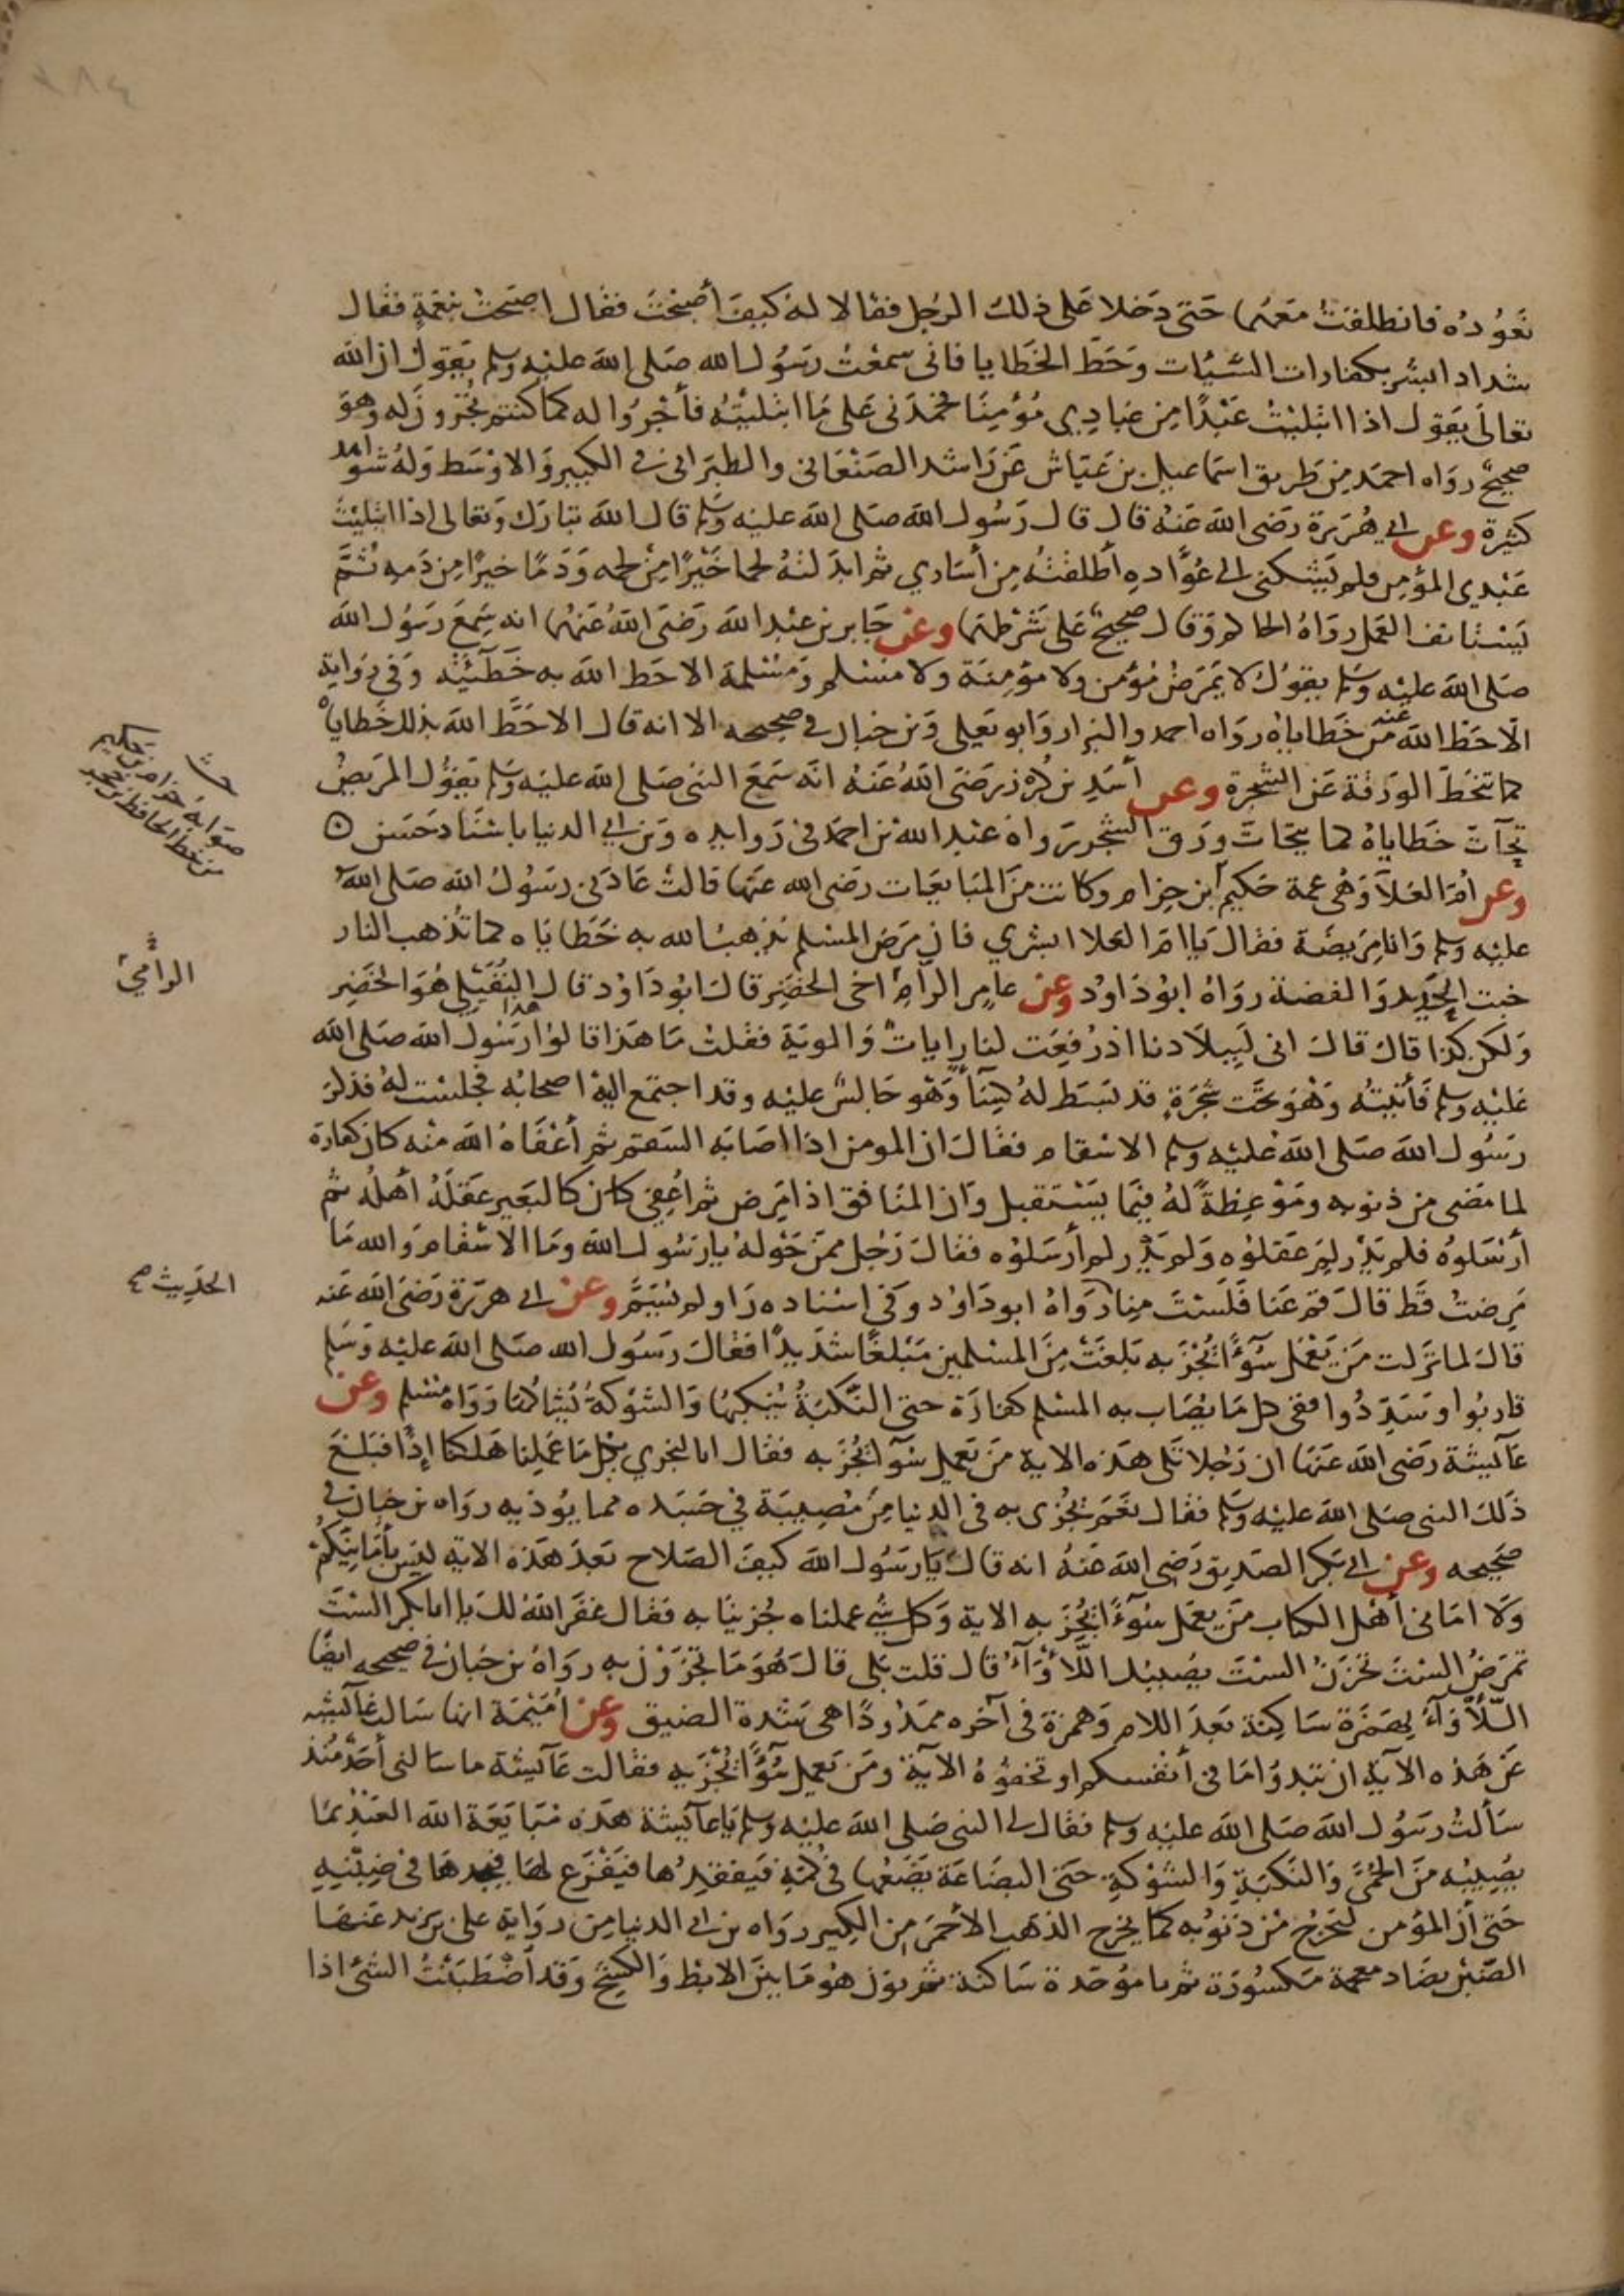 ٢٨٤
نعوده فانطلقت معهما حتى دخلا على ذلك الرجل فقالا له كيف أصبحت فقال اصبحت بنعمة فقال
شداد ابشر بكفارات السيئات وحط الخطايا فانى سمعت رسول الله صلى الله عليه وسلم يقول ان الله
تعالى يقول اذا ابتليت عبدًا من عبادي مؤمنا فحمدنى على ما ابتليته فأجروا له كما كنتم تجرون له وهو
صحيح رواه احمد من طريق اسماعيل بن عياش عن راشد الصنعانى والطبرانى فى الكبير والاوسط وله شواهد
كثيرة وعن ابي هريرة رضى الله عنه قال قال رسول الله صلى الله عليه وسلم قال الله تبارك وتعالى اذا ابتليت
عبدي المؤمن فلم يشكنى الى عواده أطلقته من أساري ثم ابدلته لحما خيرًا من لحمه ودمًا خيرًا من دمه ثم
يستانف العمل رواه الحاكم وقال صحيح على شرطهما وعن جابر بن عبد الله رضى الله عنهما انه سمع رسول الله
صلى الله عليه وسلم يقول لا يمرض مؤمن ولا مؤمنة ولا مسلم ومسلمة الا حط الله به خطئيته وفي رواية
الا حط الله عنه من خطاياه رواه احمد والبزار وابو يعلى وبن حبان في صحيحه الا انه قال الا حط الله بذلك خطاياه
كما تنحط الورقة عن الشجرة وعن أسد بن كرز رضى الله عنه انه سمع النبى صلى الله عليه وسلم يقول المريض
تحآت خطاياه كما يتحات ورق الشجر رواه عبد الله بن احمد فى زوايده وبن ابي الدنيا باسناد حسن
وعن ام العلآ وهى عمة حكيم ابن حزام وكانت من المبايعات رضى الله عنها قالت عادنى رسول الله صلى الله
عليه وسلم وانا مريضة فقال يا ام العلا ابشري فان مرض المسلم يذهب الله به خطاياه كما تذهب النار
خبث الحديد والفضة رواه ابو داود وعن عامر الرام اخى الخضر قال ابو داود قال النفيلي هو الخضر
ولكن كذا قال قال انى لببلادنا اذ رفعت لنا رايات والوية فقلت ما هذا قالوا هذا رسول الله صلى الله
عليه وسلم فأتيته وهو تحت شجرة قد بسط له كسآء وهو جالس عليه وقد اجتمع اليه اصحابه فجلست له فذكر
رسول الله صلى الله عليه وسلم الاسقام فقال ان المومن اذا اصابه السقم ثم أعفاه الله منه كان كفارة
لما مضى من ذنوبه وموعظة له فيما يستقبل وان المنافق اذا مرض ثم اعفي كان كالبعير عقله أهله ثم
أرسلوه فلم يدر لم عقلوه ولم يدر لم أرسلوه فقال رجل ممن حوله يا رسول الله وما الاسقام والله ما
مرضت قط قال قم عنا فلست منا رواه ابو داود وفى اسناده راو لم يسم وعن ابي هريرة رضى الله عنه
قال لما نزلت من يعمل سوءًا يجز به بلغت من المسلمين مبلغًا شديدًا فقال رسول الله صلى الله عليه وسلم
قاربوا وسددوا ففى كل ما يصاب به المسلم كفارة حتى النكبة ينكبها والشوكة يشاكها رواه مسلم وعن
عآئشة رضى الله عنها ان رجلا تلى هذه الاية من يعمل سوآ يجز به فقال انا لنجزي بكل ما عملنا هلكنا إذًا فبلغ
ذلك النبى صلى الله عليه وسلم فقال نعم يجزى به فى الدنيا من مصيبة في جسده مما يوذيه رواه بن حبان فى
صحيحه وعن ابي بكر الصديق رضى الله عنه انه قال يا رسول الله كيف الصلاح بعد هذه الاية ليس بأمانيكم
ولا امانى أهل الكتاب من يعمل سوءًا يجز به الاية وكل شئ عملناه جزينا به فقال غفر الله لك يا ابا بكر الست
تمرض الست تحزن الست يصيبك اللأوآء قال قلت بلى قال هو ما تجزون به رواه بن حبان فى صحيحه ايضا
اللأوآء بهمزة ساكنة بعد اللام وهمزة فى آخره ممدودًا هى شدة الضيق وعن أميمة انها سالت عآئشة
عن هذه الآية ان تبدوا ما فى أنفسكم او تخفوه الآية ومن يعمل سوءًا يجز به فقالت عآئشة ما سالنى أحد منذ
سألت رسول الله صلى الله عليه وسلم فقال لى النبى صلى الله عليه وسلم يا عآئشة هذه مبايعة الله العبد بما
يصيبه من الحمى والنكبة والشوكة حتى البضاعة يضعها فى كمه فيفقدها فيفزع لها فيجدها فى ضبنه
حتى أن المؤمن ليخرج من ذنوبه كما يخرج الذهب الأحمر من الكير رواه بن ابى الدنيا من رواية على بن يزيد عنها
الضبن بضاد معجمة مكسورة ثم با موحدة ساكنة ثم نون هو ما بين الابط والكشح وقد أضطبنت الشئ اذا
صوابه حزام بن حكيم
من خط الحافظ بن حجر
الرامي
الحديث